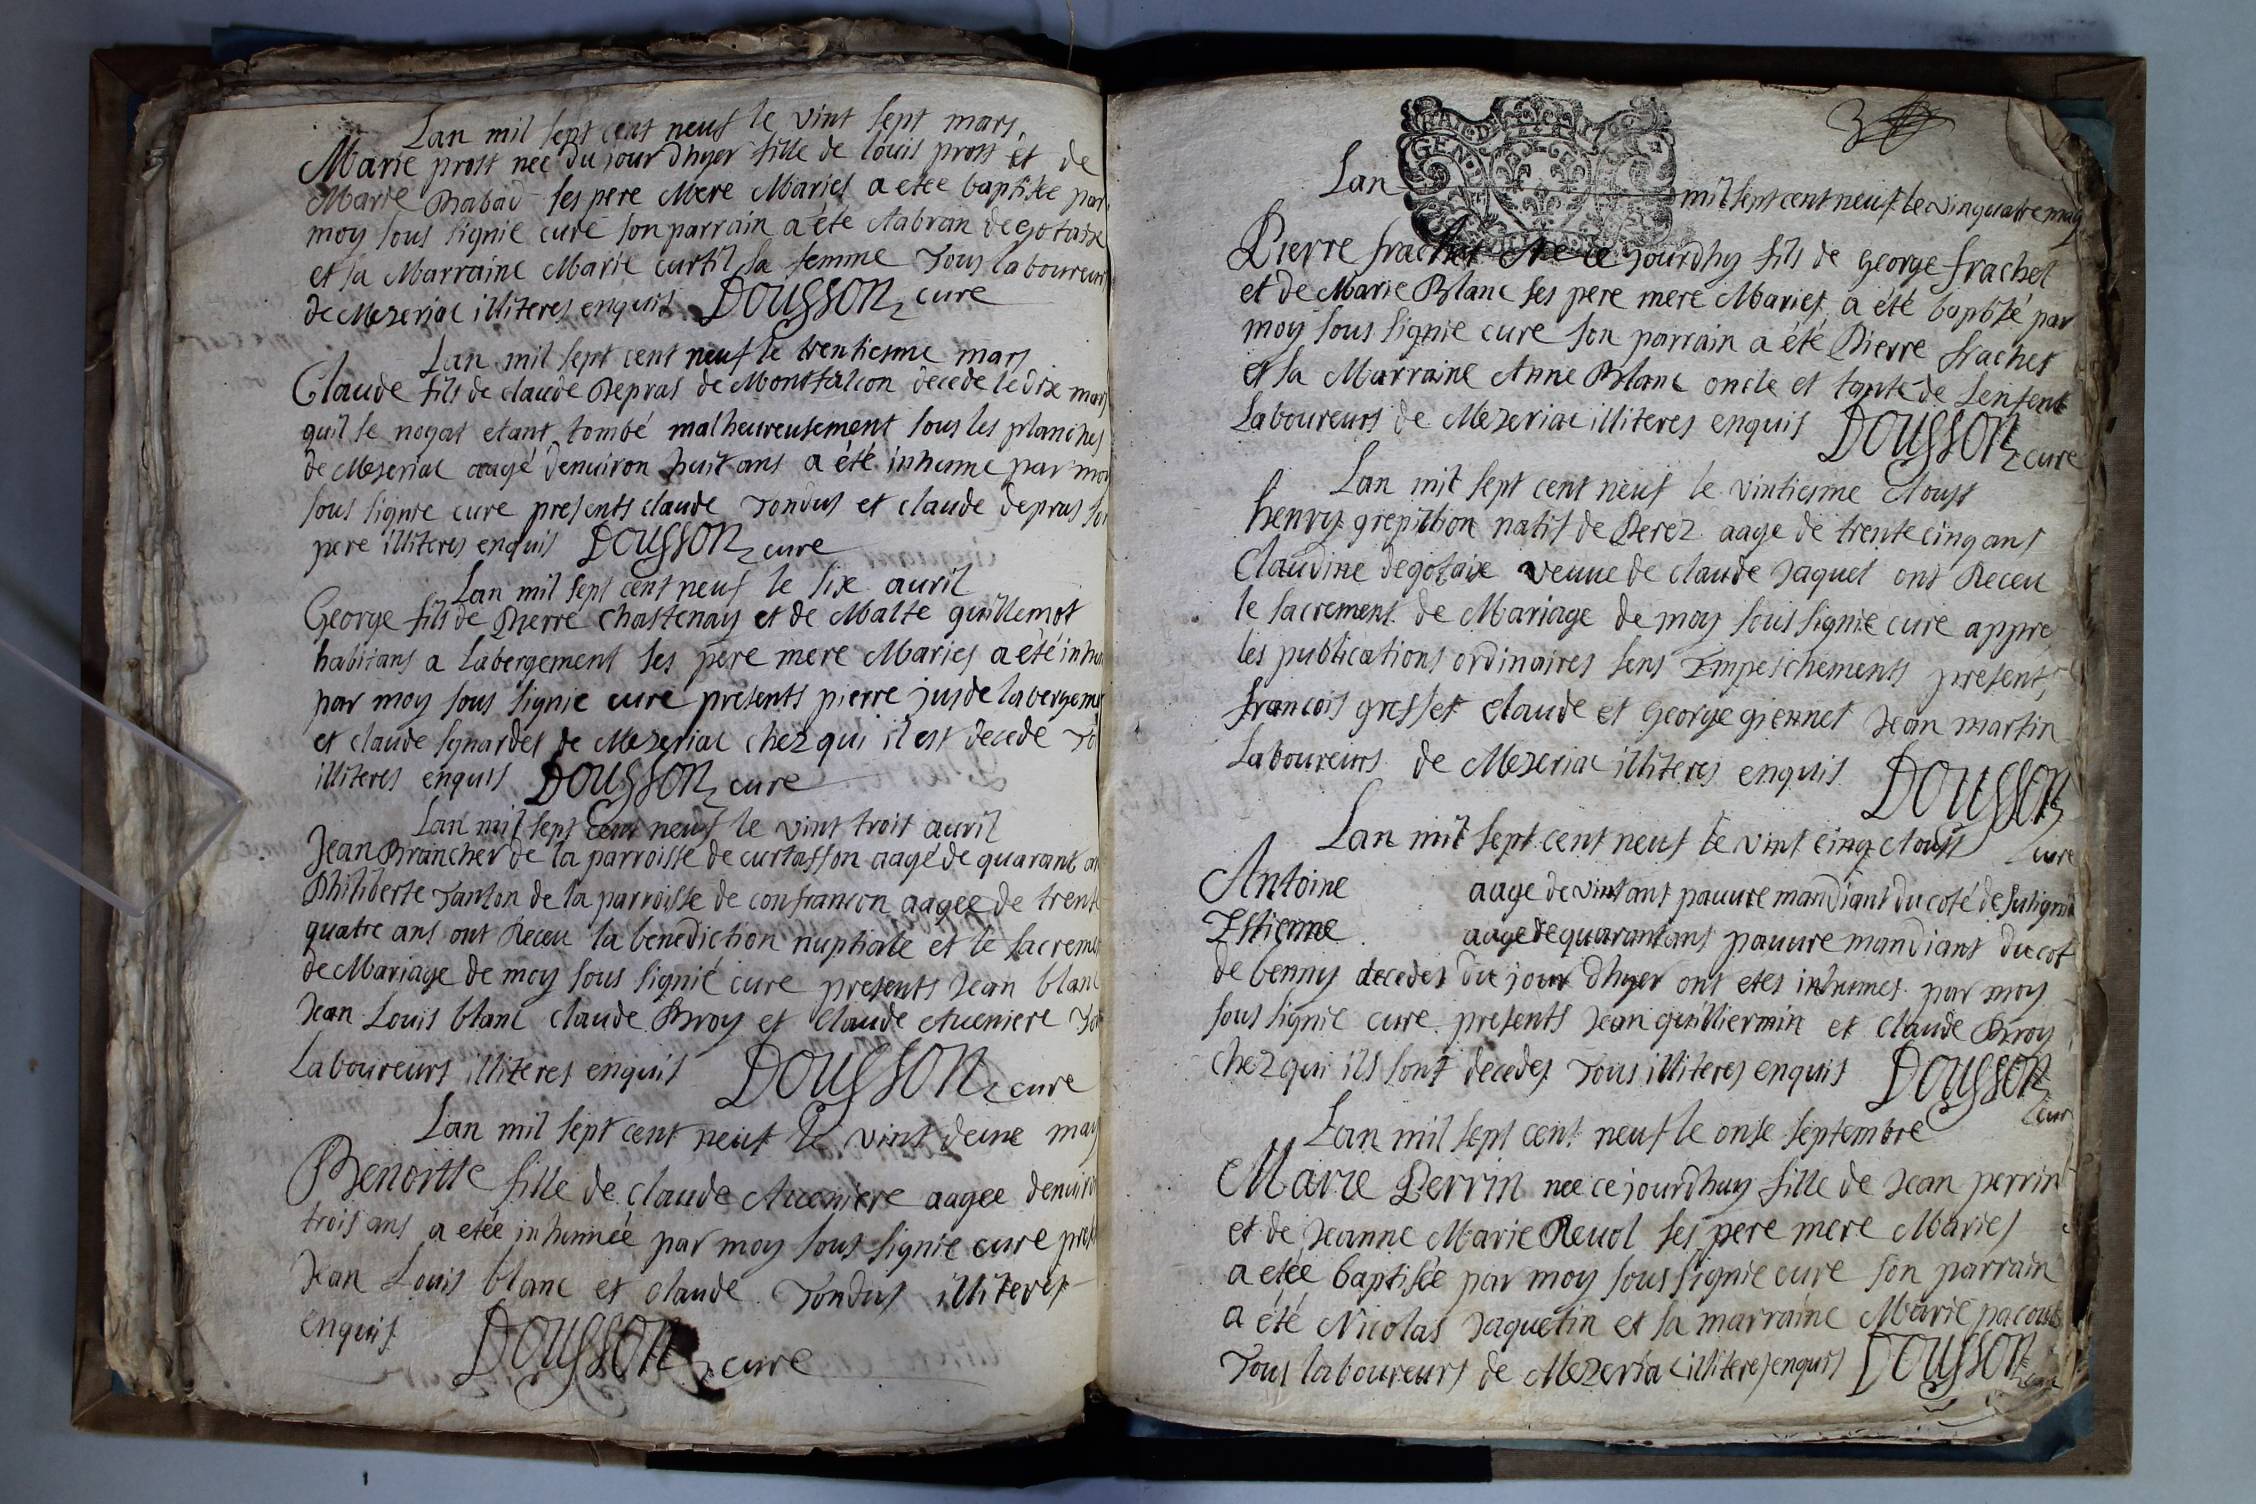 Lan mil sept cent neuf le vint sept mars
Marie prost née du jour dhyer fille de louis prost et de
Marie Rabad ses pere Mere Mariés a etée baptisée par
moy sous signié curé son parrain a été Aabran degotaise
et sa Marraine Marie curtil sa femme Tous laboureurs
de Mezeriac illiteres enquis DOUSSON cure
Lan mil sept cent neuf le trentiesme mars
Claude fils de claude Depras de Montfalcon decede le dix mars
quil se noyat etant tombé malheureusement sous les planches
de Mezeriac aagé denuiron huit ans a été inhume par moy
sous signie cure presents claude Tondus et claude depras son
pere illiteres enquis DOUSSON cure
Lan mil sept cent neuf le six auril
George fils de Pierre Chastenay et de Malte guillemot
habitans a Labergement ses pere mere Maries a été inhu
par moy sous signie cure presents pierre jus de labergeme
et claude de Mezeriac chez qui il est decede To
illiteres enquis DOUSSON cure
Lan mil sept cent neuf le vint trois auril
Jean Brancher de la parroisse de curtasson aagé de quarant an
Philiberte Tanton de la parroisse de confrancon aagee de trent
quatre ans ont Receu la benediction nuptiale et le sacreme
de Mariage de moy sous signié cure presents Jean blanc
Jean Louis blanc claude Broy et Claude Aueniere To
Laboureurs illiteres enquis DOUSSON cure
Lan mil sept cent neuf le vint deuxe may
Benoitte fille de claude Aueniere aagee denuiro
trois ans a etée inhumée par moy sous signie cure pres
Jean Louis blanc et claude Tondus illiteres
enquis DOUSSON cure
3
GEN
Lan mil sept cent neuf le vinquatre may
Pierre frachet Né ce jourdhy fils de George frachet
et de Marie Blanc ses pere mere Maries a été baptisé par
moy sous signie cure son parrain a été Pierre frachet
et sa Marraine Anne Blanc oncle et tante de Lenfent
Laboureurs de Mezeriac illiteres enquis DOUSSON cure
Lan mil sept cent neuf le vintiesme Aoust
henry grepillion natif de Perez aage de trente cinq ans
Claudine degotaix veuue de claude Jaquet ont Receu
le sacrement de Mariage de moy sous signie cure appre
les publications ordinaires sens Impeschements presents
francois gresset claude et George giennet Jean martin
Laboureurs de Mezeriac illiteres enquis DOUSSON
cure
Lan mil sept cent neuf le vint cinq Aoust
Antoine aage de vint ans pauure mandiant du coté de
Estienne aage de quarantans pauure mandiant du cot
de benny decedes du jour dhyer ont etes inhumes par moy
sous signie cure presents Jean guilliermin et claude Broy
chez qui ils sont decedes Tous illiteres enquis DOUSSON
cur
Lan mil sept cent neuf le onse septembre
Marie Perrin née ce jourdhuy fille de Jean perrin
et de Jeanne Marie Reuol ses pere mere Maries
a etée baptisée par moy sous signie cure son parrain
a été Nicolas Jaquetin et sa marraine Marie pacoud
Tous laboureurs de Mezeriac illiteres enquis DOUSSON cure